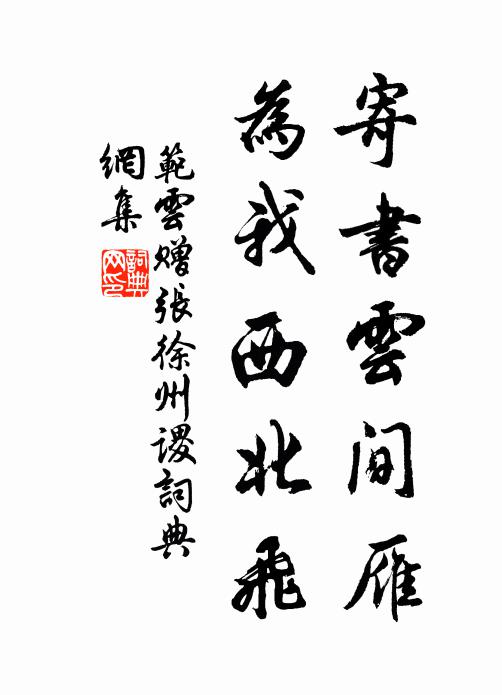 寄書雲間雁
為我西北飛
範雲贈張徐州謖詞典
網集
詞典
网印